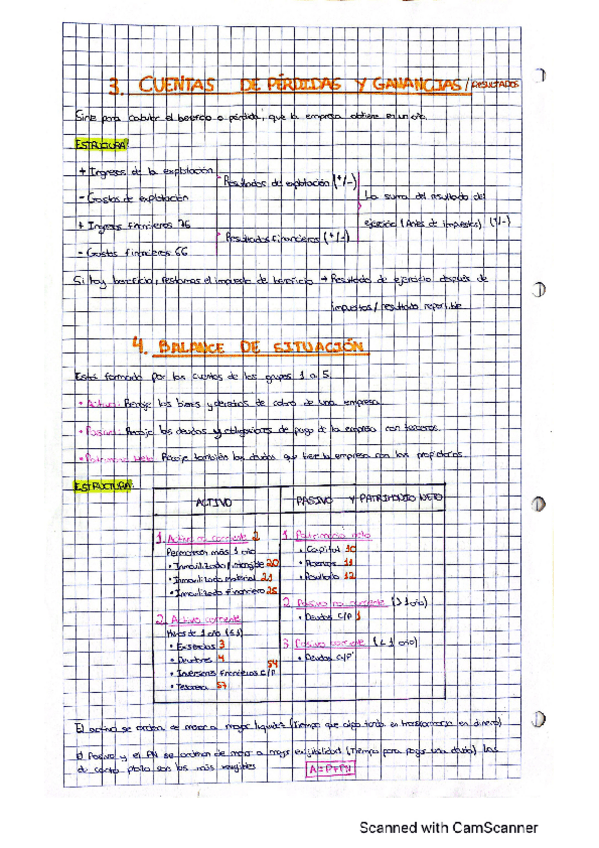 3. CUENTAS DE PÉRDIDAS Y GANANCIAS / RESULTADOS
Sirve para calcular el beneficio o pérdida, que la empresa obtiene en un año.
ESTRUCTURA:
+ Ingresos de la explotación
- Gastos de explotación
Resultados de explotación (+/-)
+ Ingresos financieros 76
- Gastos financieros 66
Resultados Financieros (+/-)
La suma del resultado del
ejercicio (Antes de impuestos) (+/-)
Si hay beneficio, restamos el impuesto de beneficio → Resultado de ejercicio después de
impuestos / resultado
4. BALANCE DE SITUACIÓN
Está formado por las cuentas de los grupos 1 a 5.
• Activo: Recoge los bienes y derechos de cobro de una empresa.
• Pasivo: Recoge las deudas y obligaciones de pago de la empresa con terceros.
• Patrimonio Neto: Recoge también las deudas que tiene la empresa con los propietarios.
ESTRUCTURA:
ACTIVO
1. Activo no corriente 2
Permanecen más 1 año
• Inmovilizado intangible 20
• Inmovilizado material 21
• Inmovilizado financiero 25
2. Activo corriente
Menos de 1 año (≤1)
• Existencias 3
• Deudores 4
• Inversiones financieras C/P 54
• Tesorería 57
PASIVO Y PATRIMONIO NETO
1. Patrimonio neto
• Capital 10
• Reservas 11
• Resultado 12
2. Pasivo no corriente (>1 año)
• Deudas C/P 1
3. Pasivo corriente (<1 año)
• Deudas C/P
El activo se ordena de menor a mayor liquidez (Tiempo que algo tarda en transformarse en dinero)
El Pasivo y el PN se ordenan de menor a mayor exigibilidad (Tiempo para pagar una deuda) las
de corto plazo son las más exigibles
A=P+PN
Scanned with CamScanner